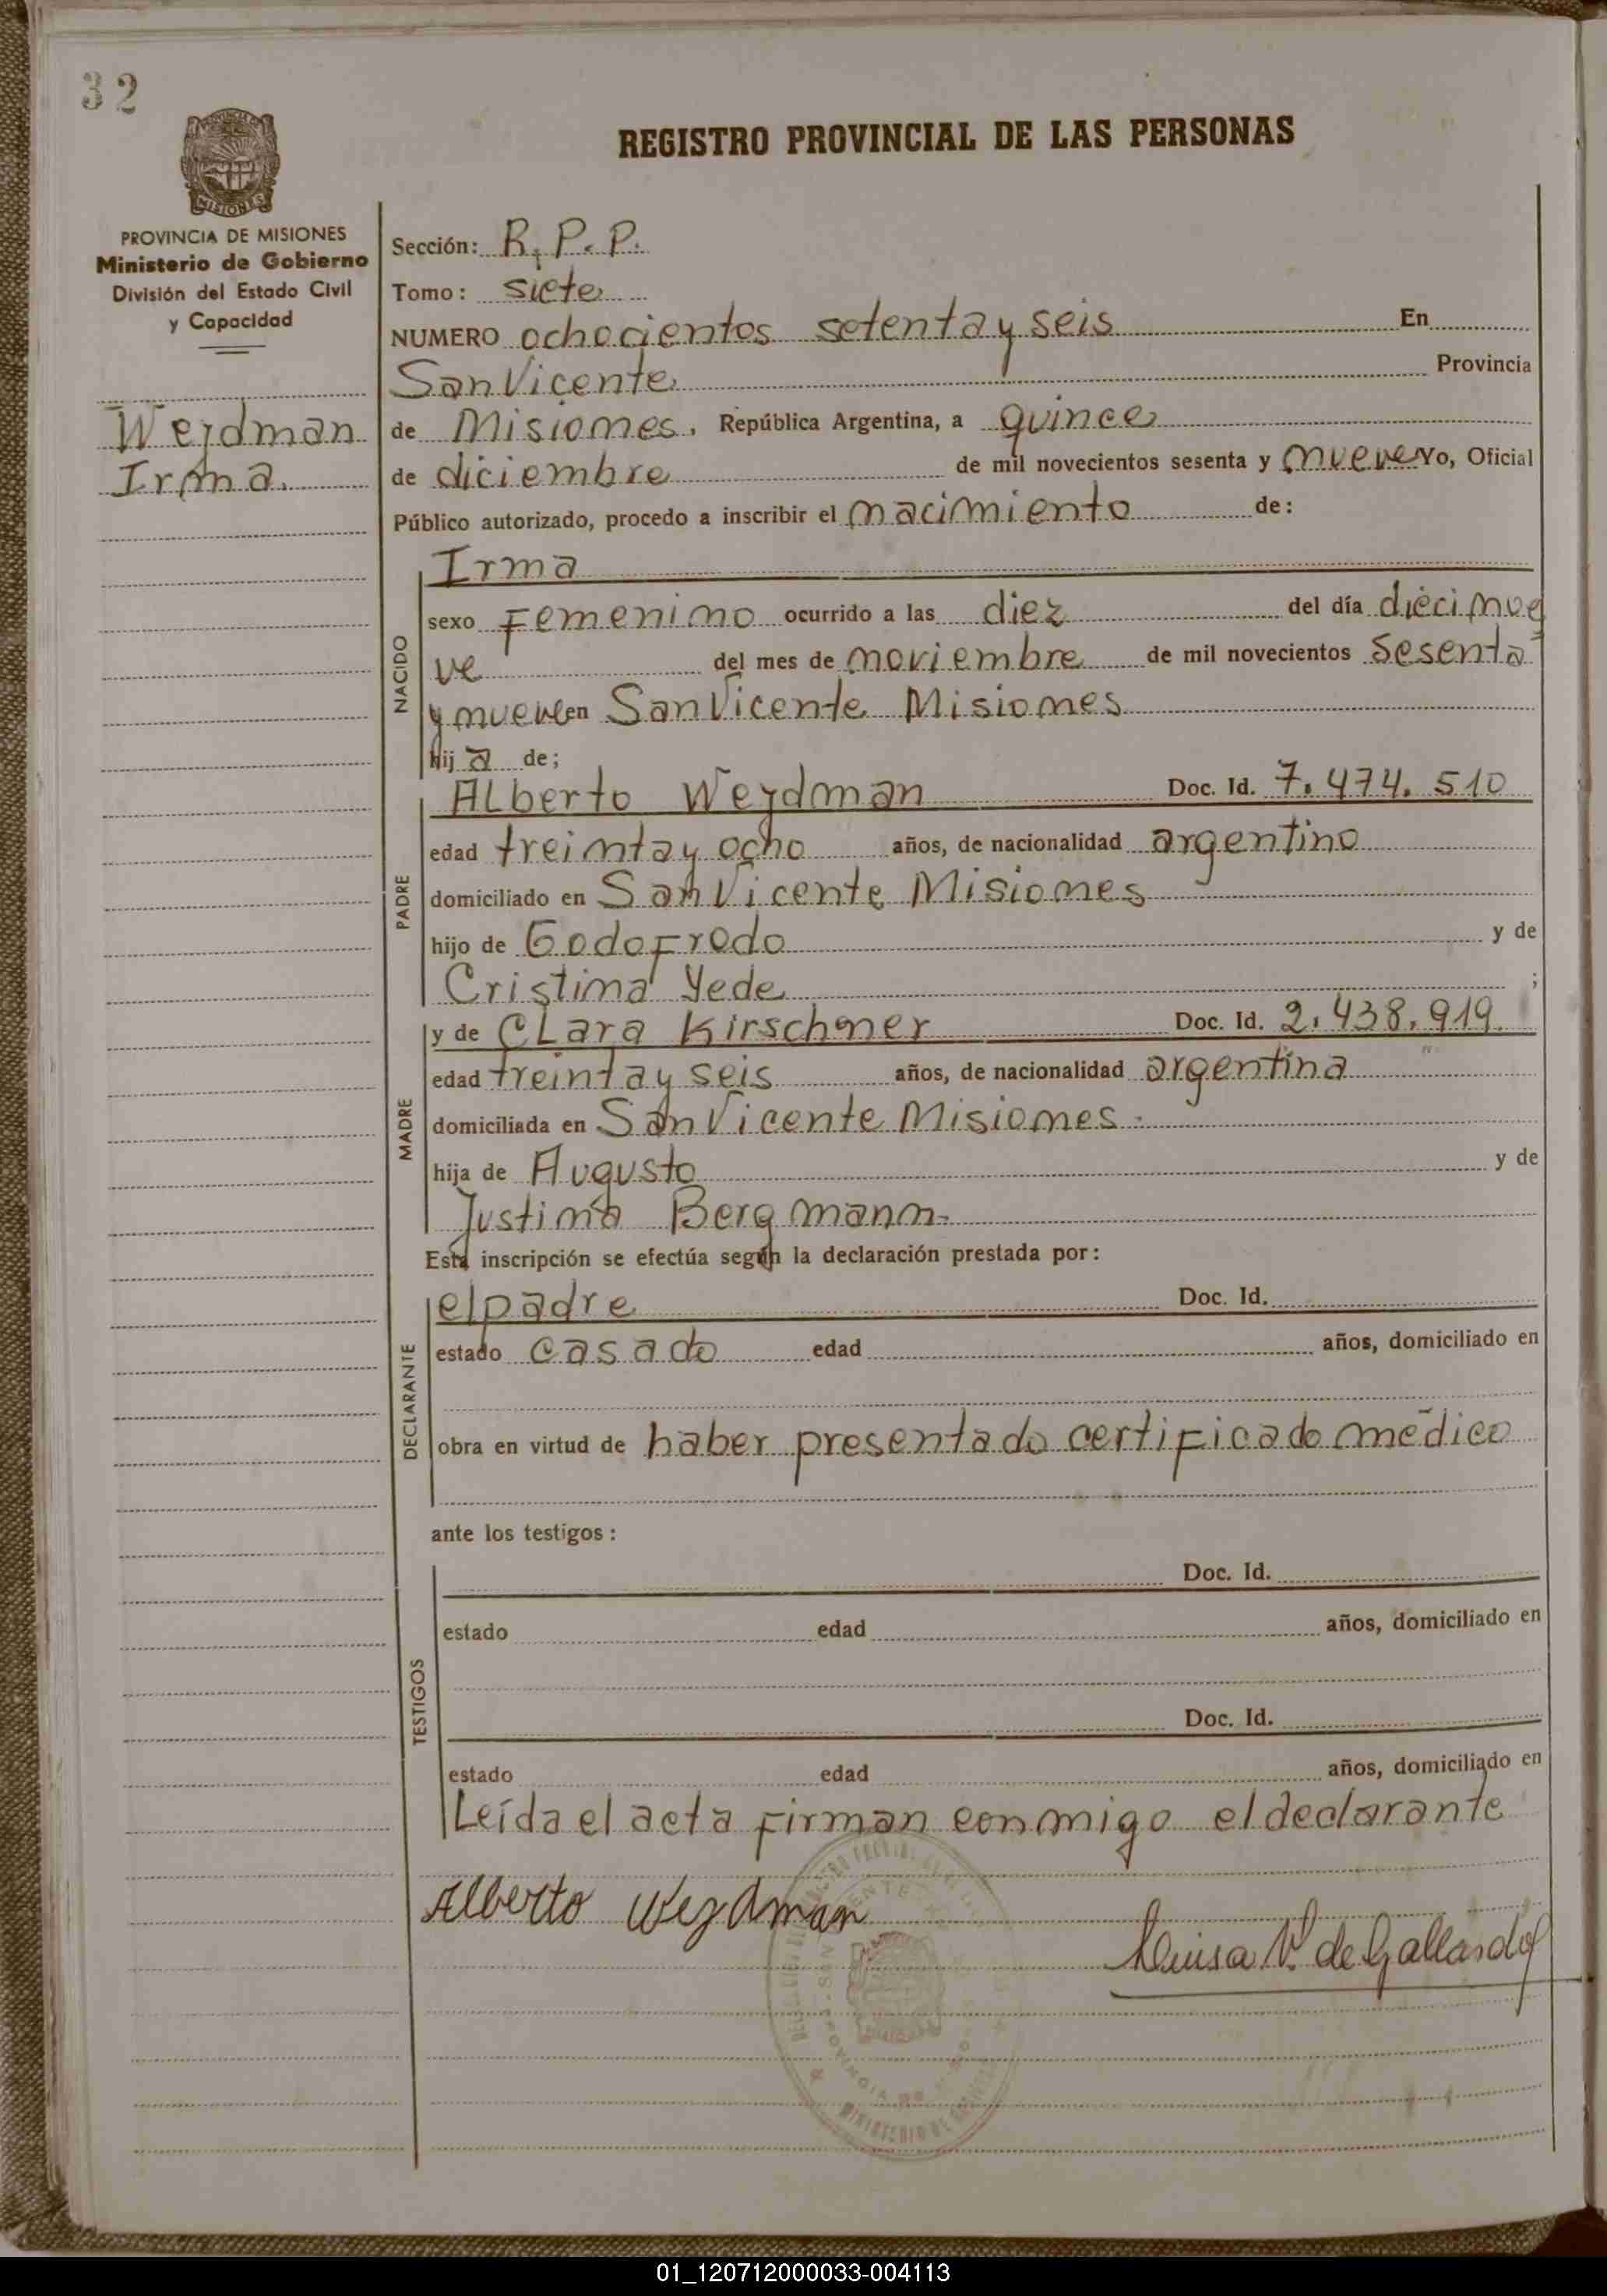 32
REGISTRO PROVINCIAL DE LAS PERSONAS
MISIONES
PROVINCIA DE MISIONES
Ministerio de Gobierno
División del Estado Civil
y Capacidad
Weydman
Irma.
Sección: R. P. P.
Tomo: siete
NUMERO ochocientos setenta y seis En
San Vicente Provincia
de Misiones. República Argentina, a quince
de diciembre de mil novecientos sesenta y nueve Yo, Oficial
Público autorizado, procedo a inscribir el nacimiento de:
NACIDO
Irma
sexo Femenino ocurrido a las diez del día diecinue
ve del mes de noviembre de mil novecientos sesenta
y nueve en San Vicente Misiones
hij a de;
PADRE
Alberto Weydman Doc. Id. 7.474.510
edad treinta y ocho años, de nacionalidad argentino
domiciliado en San Vicente Misiones
hijo de Godofrodo y de
Cristina Yede ;
MADRE
y de Clara Kirschner Doc. Id. 2.438.919.
edad treinta y seis años, de nacionalidad argentina
domiciliada en San Vicente Misiones.
hija de Augusto y de
Justina Bergmann
Esta inscripción se efectúa según la declaración prestada por:
DECLARANTE
el padre Doc. Id.
estado casado edad años, domiciliado en
obra en virtud de haber presentado certificado médico
ante los testigos:
TESTIGOS
Doc. Id.
estado edad años, domiciliado en
Doc. Id.
estado edad años, domiciliado en
Leída el acta firman conmigo el declarante
Alberto Weydman
Luisa V. de Gallardo
01_120712000033-004113